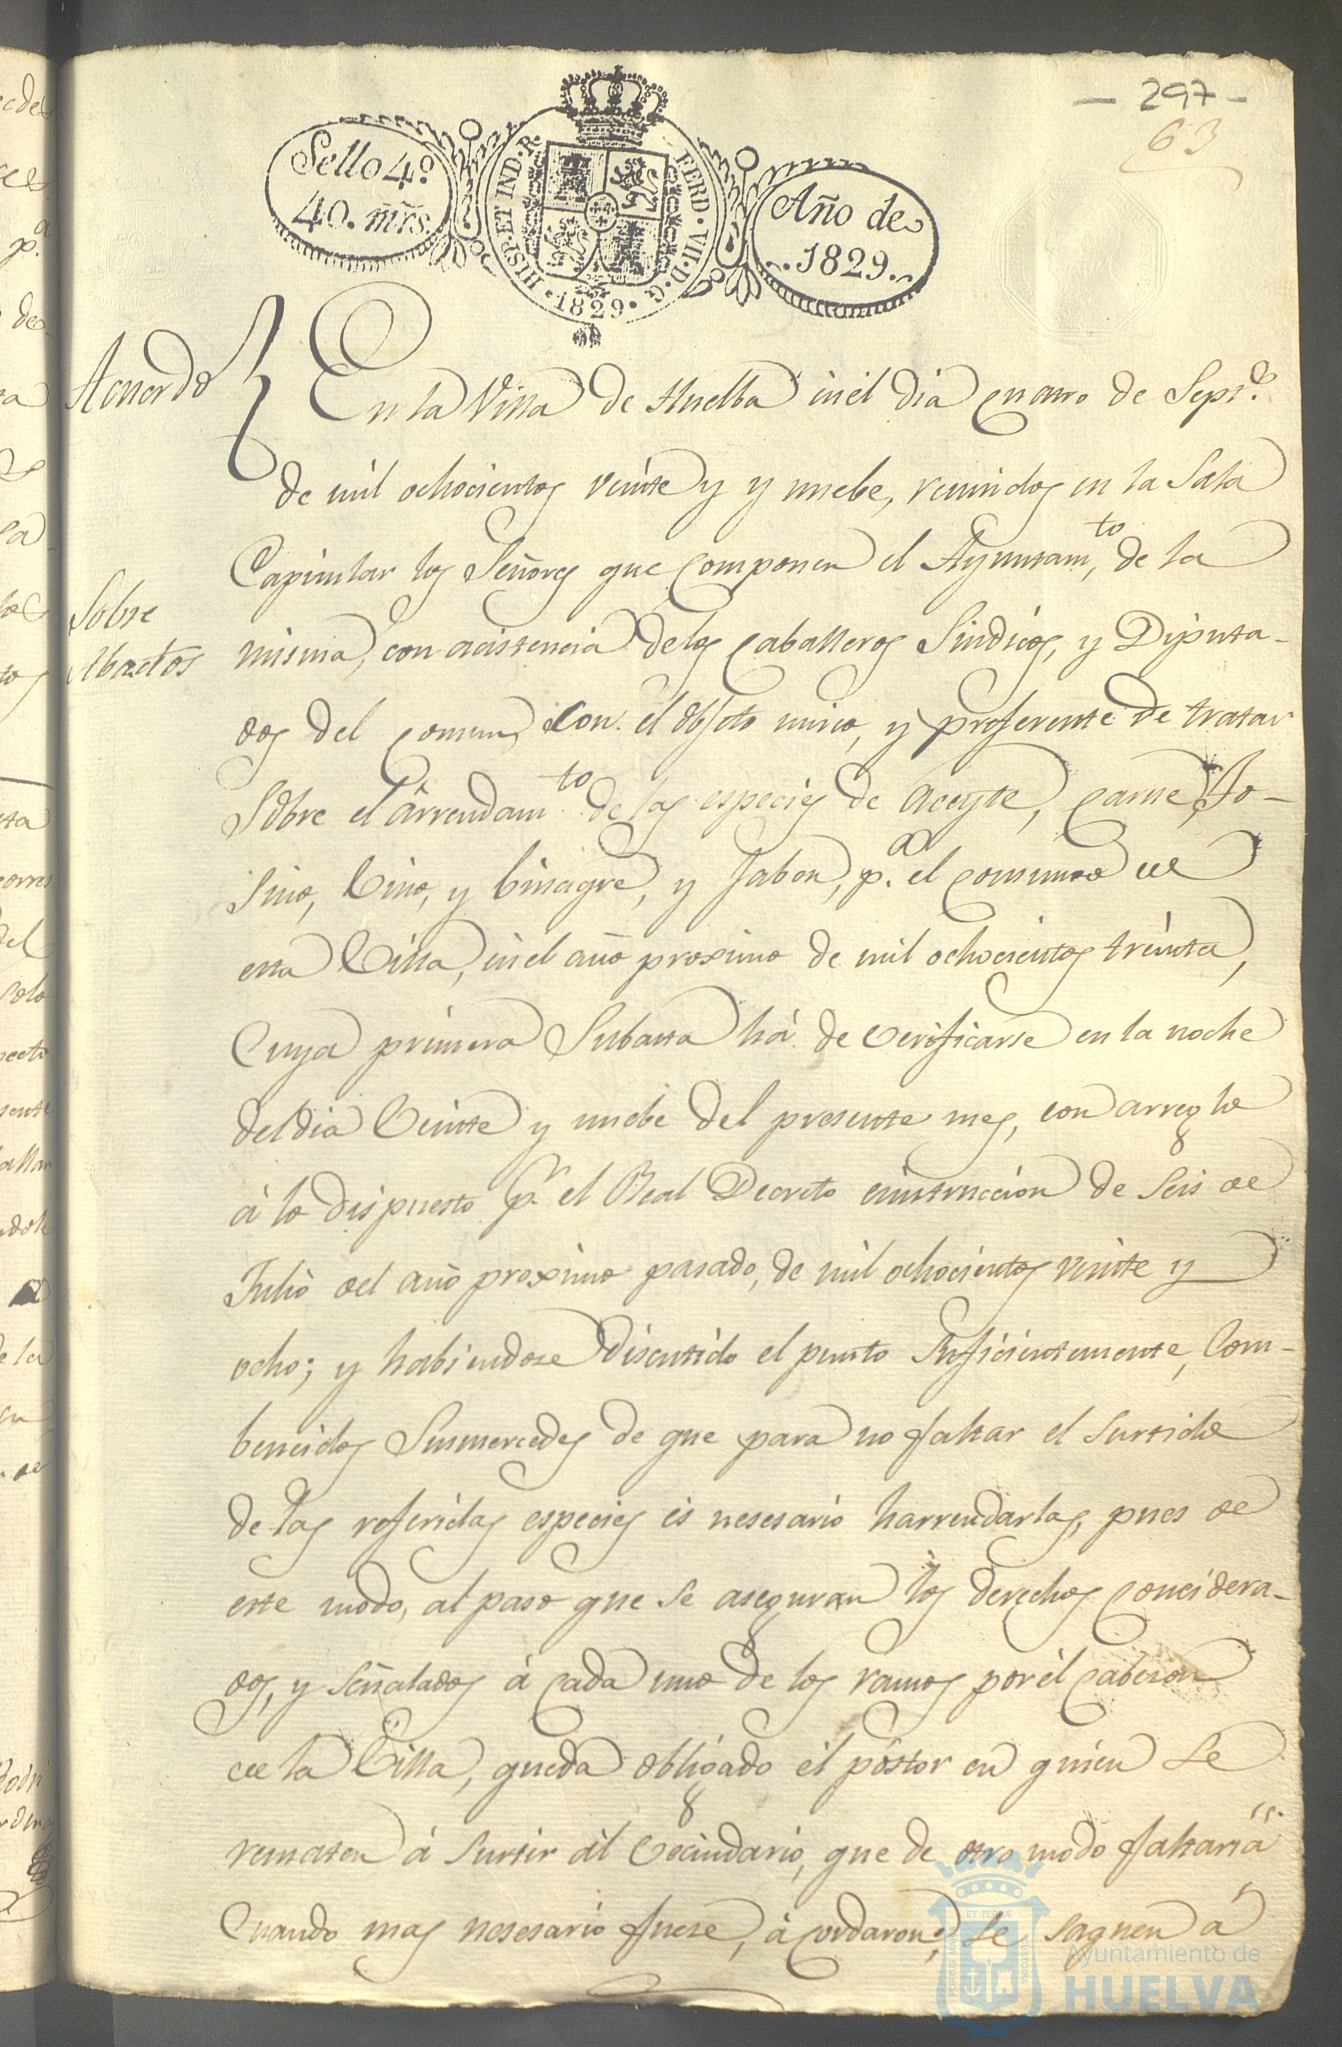 - 297 -
63
Sello 4º
40. mrs.
HISP. ET IND. R.
FERD. VII. D. G.
· 1829 ·
Año de
1829.
Acuerdo
En la Villa de Huelba inel dia cuatro de Septe.
de mil ochocientos veinte y y nuebe, reunidos en la Sala
Capitular los Señores que componen el Ayuntamto, de la
Sobre
Abactos
misma, con acistencia delos Caballeros Sindicos, y Diputa-
dos del comun, con el objeto unico, y preferente de tratar
Sobre el arrendamto de las especies de Aceyte, Carne, To-
sino, Vino, y binagre, y Jabon, pa. el comumo de
esta Villa, inel año proximo de mil ochocientos treinta,
Cuya primera Subasta há de verificarse en la noche
deldia Veinte y nuebe del presente mes, con arreglo
á lo dispuesto pr. el Real Decreto einstruccion de seis de
Julio del año proximo pasado, de mil ochocientos veinte y
ocho; y habiendose discutido el punto Suficientemente, Com-
bencidos Susmercedes de que para no faltar el surtido
de las referidas especies es nesesario harrendarlas, pues de
este modo, al paso que se aseguran los derechos concidera-
dos, y señalados á cada uno de los ramos por el Cabeson
de la Villa, queda obligado el póstor en quien se
rematen á surtir al Vecindario, que de otro modo faltaria
Cuando mas nesesario fuese, á cordaron; se saquen á
Ayuntamiento de
HUELVA